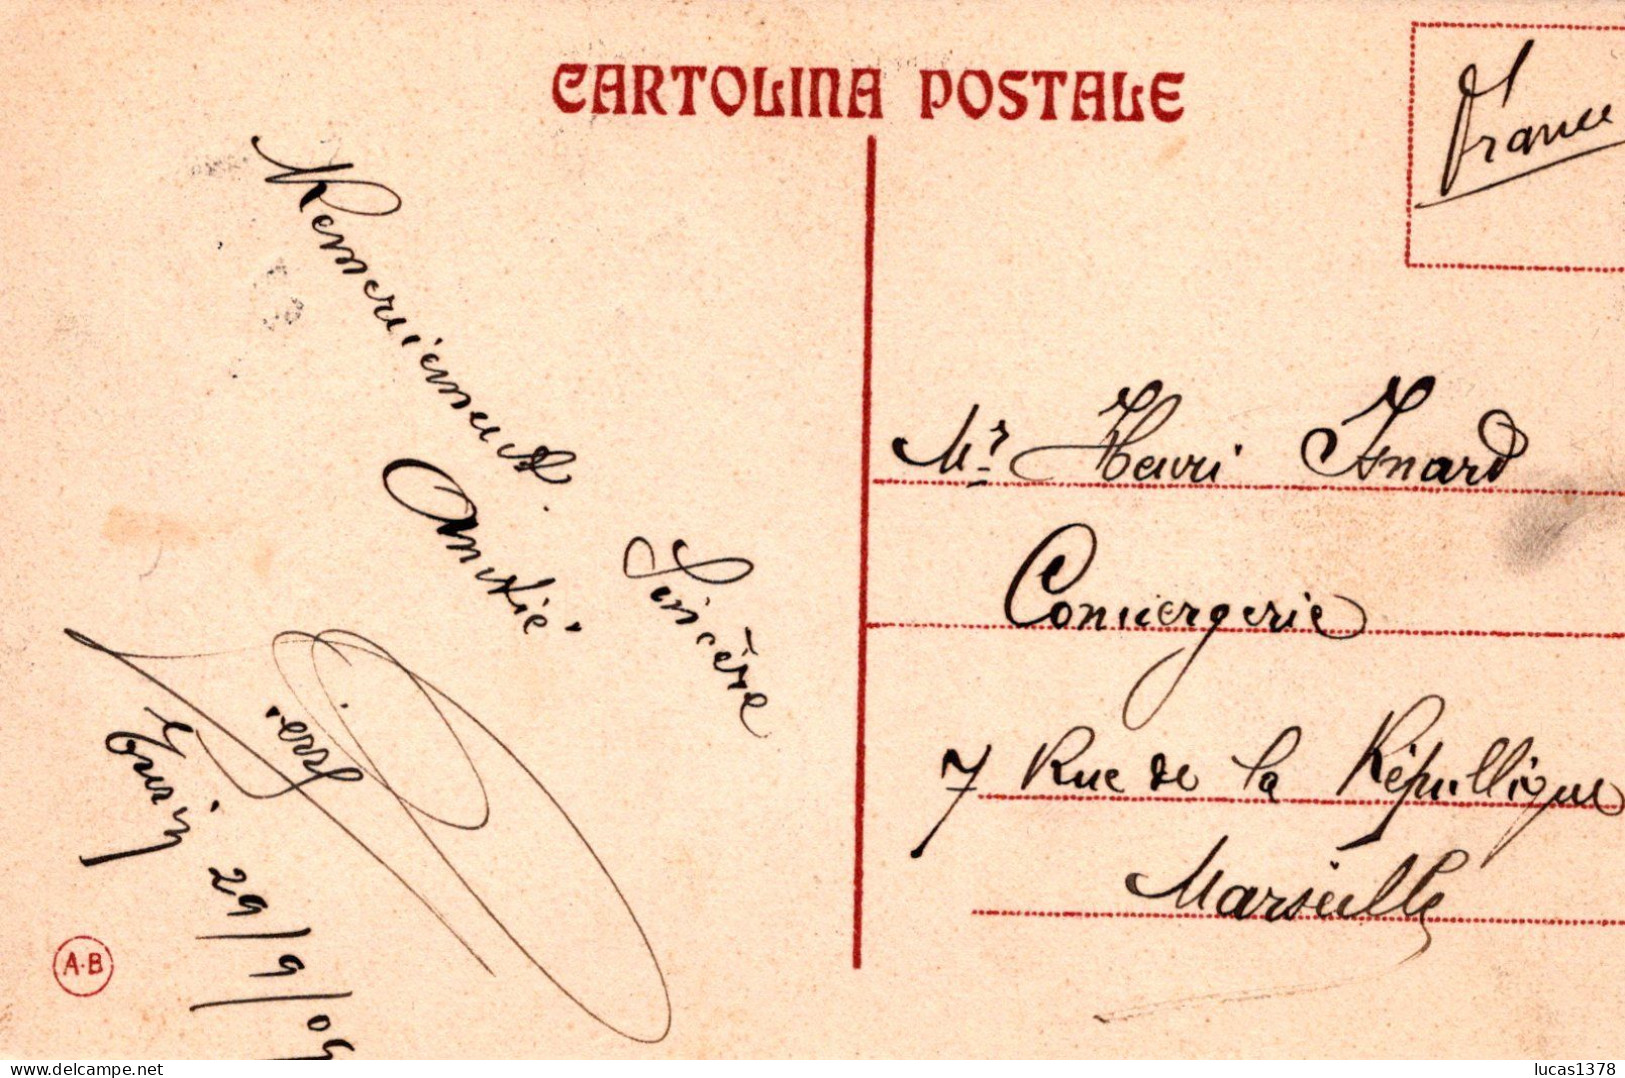 CARTOLINA POSTALE
France
Remerciement.
Sincère
Amitié.
Turin
29/9/09
Mr Henri Isnard
Conciergerie
7 Rue de la République
Marseille
A·B
delcampe.net
lucas1378